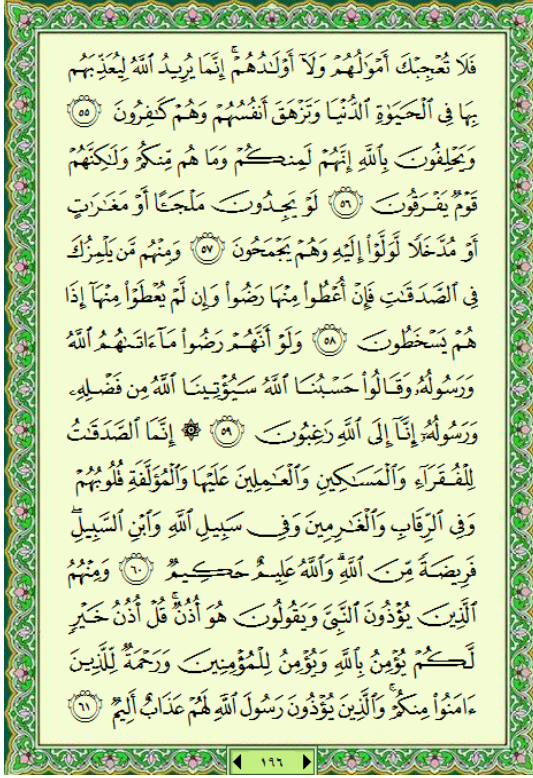 فَلَا تُعْجِبْكَ أَمْوَٰلُهُمْ وَلَآ أَوْلَـٰدُهُمْ ۚ إِنَّمَا يُرِيدُ ٱللَّهُ لِيُعَذِّبَهُم
بِهَا فِى ٱلْحَيَوٰةِ ٱلدُّنْيَا وَتَزْهَقَ أَنفُسُهُمْ وَهُمْ كَـٰفِرُونَ ٥٥
وَيَحْلِفُونَ بِٱللَّهِ إِنَّهُمْ لَمِنكُمْ وَمَا هُم مِّنكُمْ وَلَـٰكِنَّهُمْ
قَوْمٌ يَفْرَقُونَ ٥٦ لَوْ يَجِدُونَ مَلْجَـًٔا أَوْ مَغَـٰرَٰتٍ
أَوْ مُدَّخَلًا لَّوَلَّوْا۟ إِلَيْهِ وَهُمْ يَجْمَحُونَ ٥٧ وَمِنْهُم مَّن يَلْمِزُكَ
فِى ٱلصَّدَقَـٰتِ فَإِنْ أُعْطُوا۟ مِنْهَا رَضُوا۟ وَإِن لَّمْ يُعْطَوْا۟ مِنْهَآ إِذَا
هُمْ يَسْخَطُونَ ٥٨ وَلَوْ أَنَّهُمْ رَضُوا۟ مَآ ءَاتَىٰهُمُ ٱللَّهُ
وَرَسُولُهُۥ وَقَالُوا۟ حَسْبُنَا ٱللَّهُ سَيُؤْتِينَا ٱللَّهُ مِن فَضْلِهِۦ
وَرَسُولُهُۥٓ إِنَّآ إِلَى ٱللَّهِ رَٰغِبُونَ ٥٩ ۞ إِنَّمَا ٱلصَّدَقَـٰتُ
لِلْفُقَرَآءِ وَٱلْمَسَـٰكِينِ وَٱلْعَـٰمِلِينَ عَلَيْهَا وَٱلْمُؤَلَّفَةِ قُلُوبُهُمْ
وَفِى ٱلرِّقَابِ وَٱلْغَـٰرِمِينَ وَفِى سَبِيلِ ٱللَّهِ وَٱبْنِ ٱلسَّبِيلِ ۖ
فَرِيضَةً مِّنَ ٱللَّهِ ۗ وَٱللَّهُ عَلِيمٌ حَكِيمٌ ٦٠ وَمِنْهُمُ
ٱلَّذِينَ يُؤْذُونَ ٱلنَّبِىَّ وَيَقُولُونَ هُوَ أُذُنٌ ۚ قُلْ أُذُنُ خَيْرٍ
لَّكُمْ يُؤْمِنُ بِٱللَّهِ وَيُؤْمِنُ لِلْمُؤْمِنِينَ وَرَحْمَةٌ لِّلَّذِينَ
ءَامَنُوا۟ مِنكُمْ ۚ وَٱلَّذِينَ يُؤْذُونَ رَسُولَ ٱللَّهِ لَهُمْ عَذَابٌ أَلِيمٌ ٦١
١٩٦